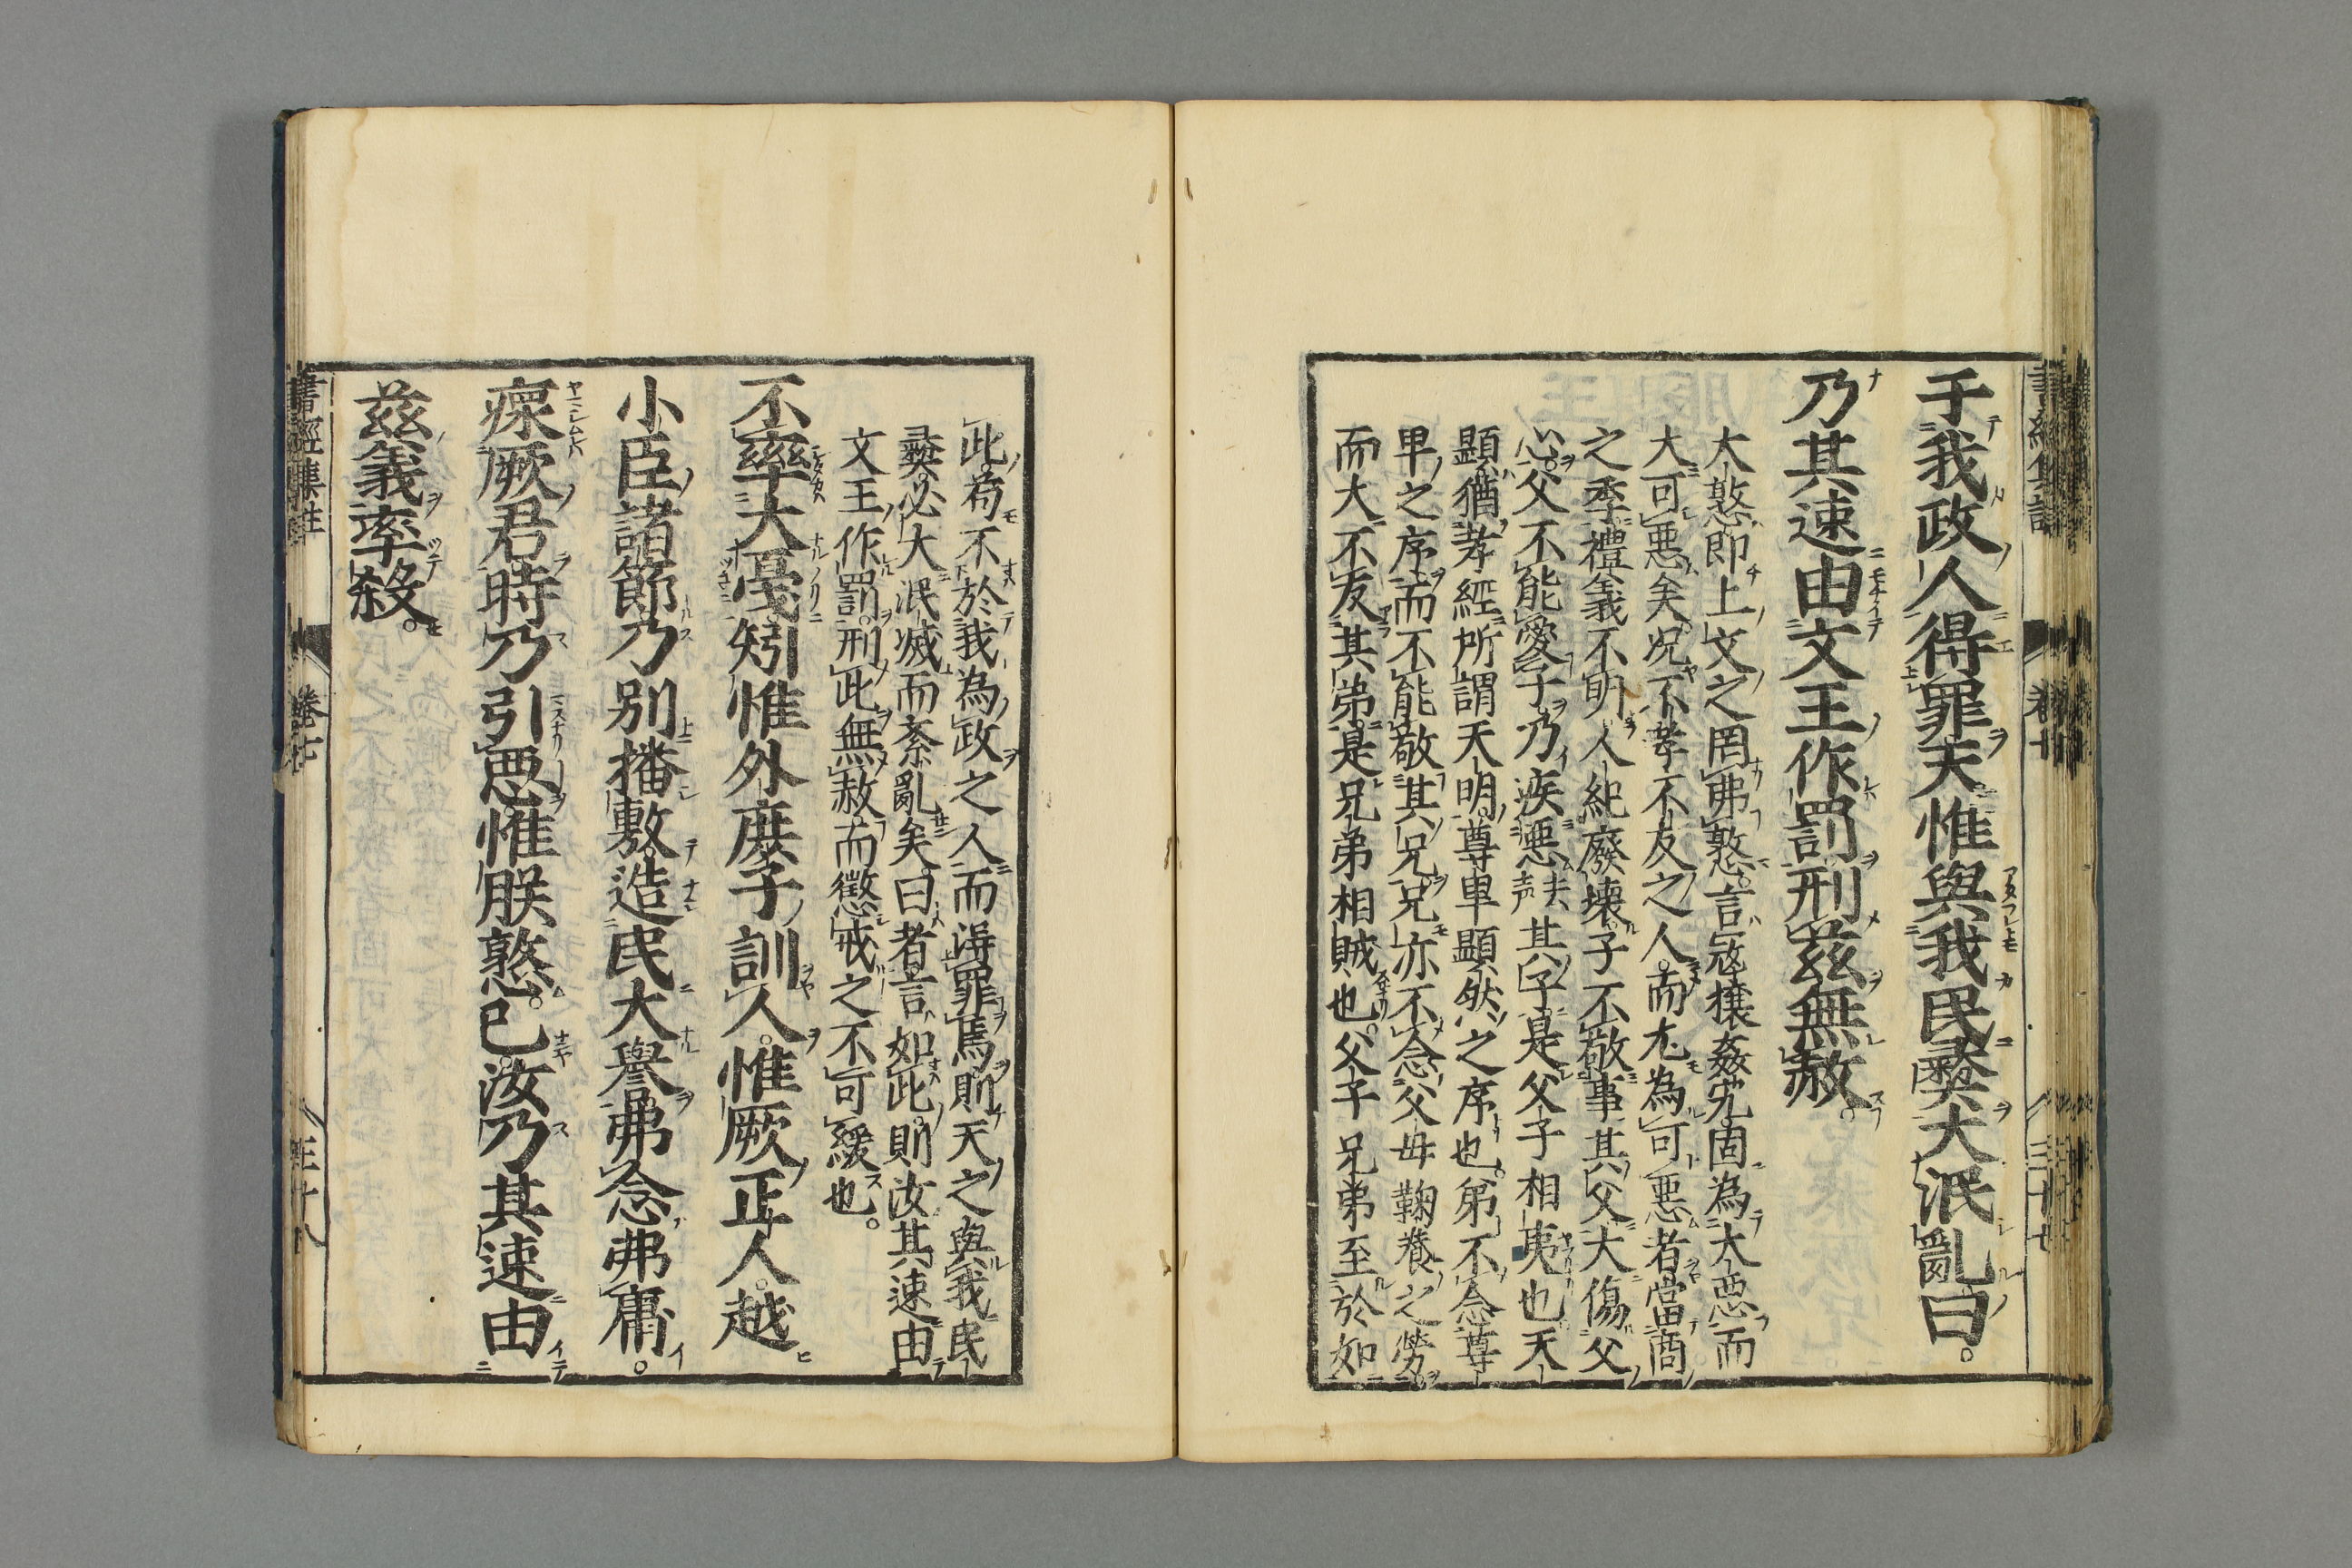 于我政人得罪天惟與我民彝大泯亂曰
乃其速由文王作罰刑茲無赦
大憝即上文之罔弗憝言寇攘姦宄固為大惡而
大可惡矣况不孝不友之人而尤為可惡者當商
之季禮義不明人紀廢壊子不敬事其父大傷父
心父不能愛子乃疾惡其子是父子相夷也天
顯猶孝經所謂天明尊卑顯然之序也弟不念尊
卑之序而不能敬其兄兄亦不念父母鞠養之勞
而大不友其弟是兄弟相賊也父子兄弟至於如
此苟不於我為政之人而得罪焉則天之與我民
彝必大泯滅而紊亂矣曰者言如此則汝其速由
文王作罰刑此無赦而懲戒之不可緩也
不率大戞矧惟外庶子訓人惟厥正人越
小臣諸節乃別播敷造民大譽弗念弗庸
瘝厥君時乃引惡惟朕憝已汝乃其速由
茲義率殺
書經集註
卷七
三十八